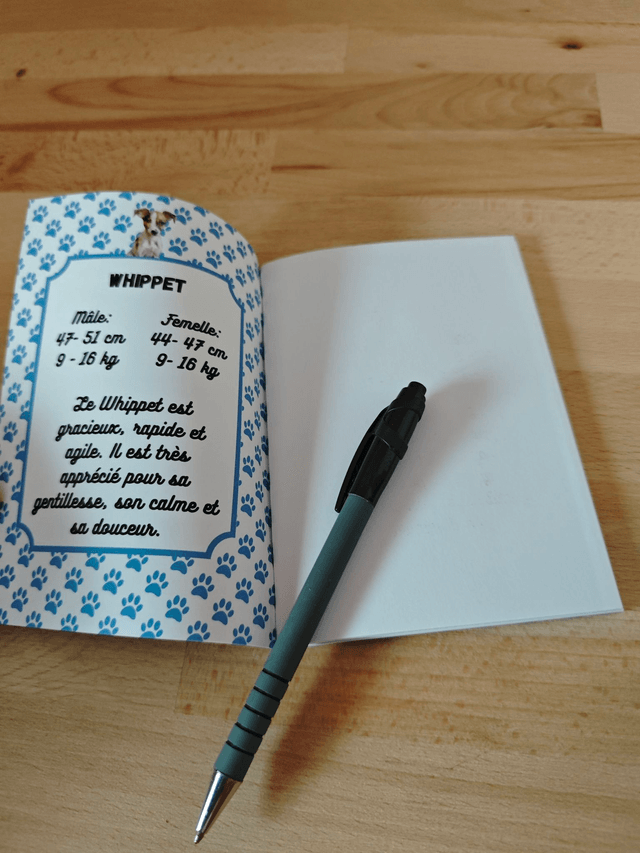 WHIPPET
Mâle: Femelle:
47- 51 cm 44- 47 cm
9 - 16 kg 9- 16 kg
Le Whippet est
gracieux, rapide et
agile. Il est très
apprécié pour sa
gentillesse, son calme et
sa douceur.